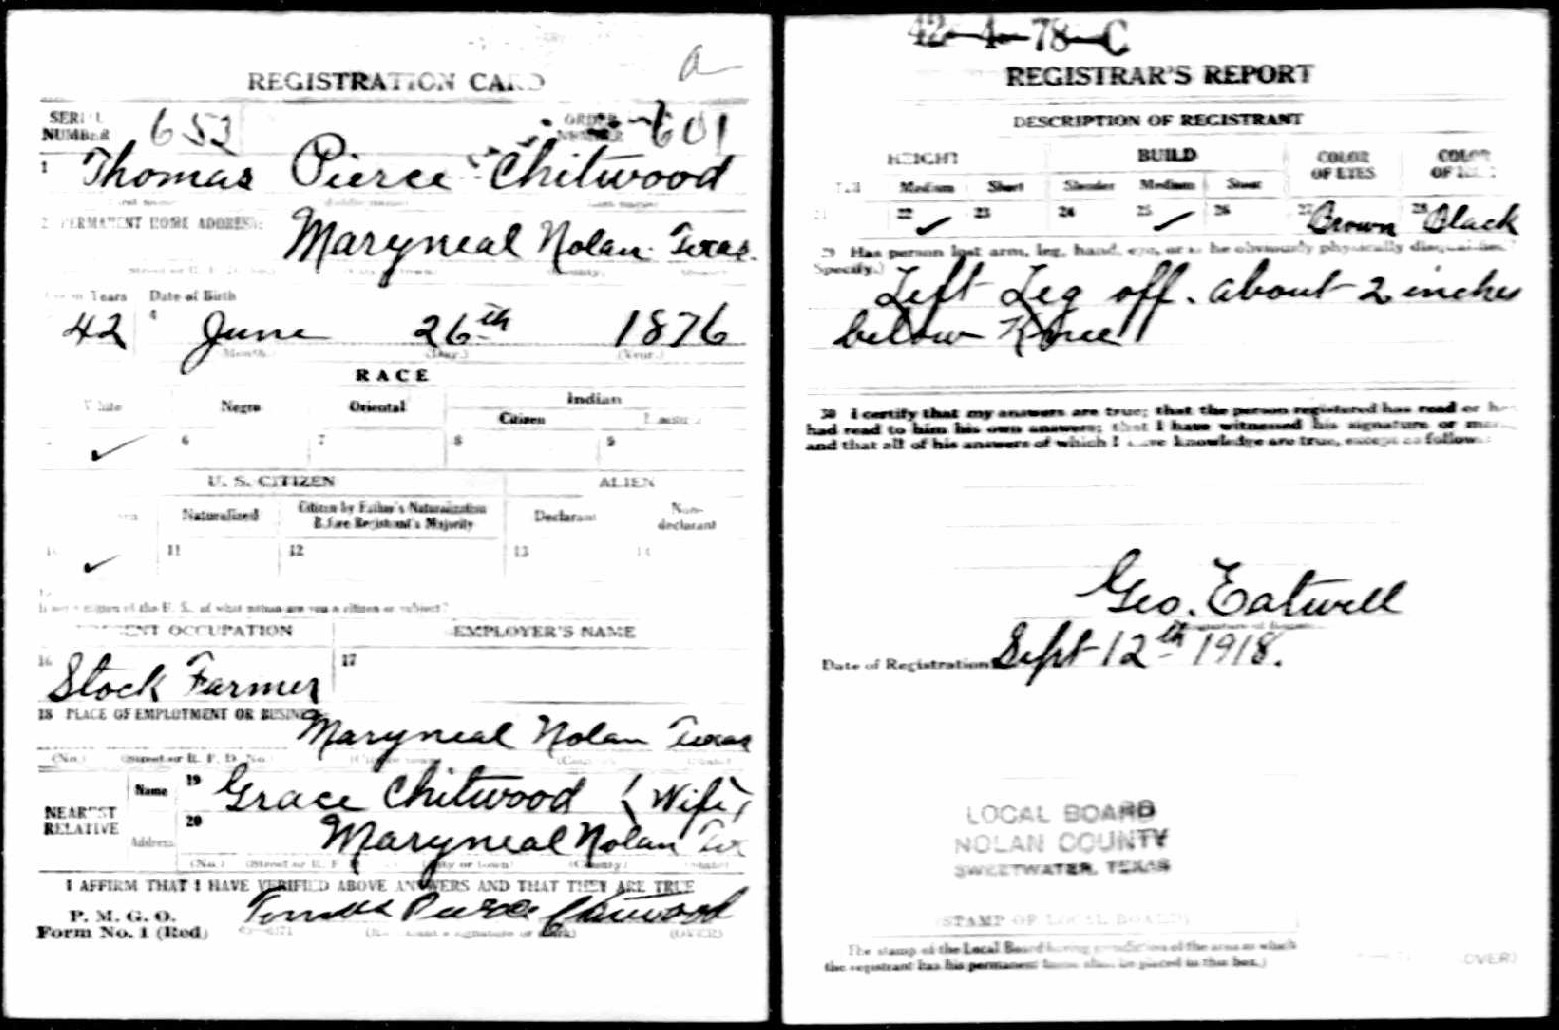 a
REGISTRATION CARD
SERIAL NUMBER 653 ORDER NUMBER 601
1 Thomas Pierce Chitwood
2 PERMANENT HOME ADDRESS:
Maryneal Nolan Texas.
Age in Years Date of Birth
42 June 26th 1876
(Month.) (Day.) (Year.)
RACE
White Negro Oriental Indian
Citizen
✓ 6 7 8 9
U. S. CITIZEN ALIEN
Naturalized Citizen by Father's Naturalization Before Registrant's Majority Declarant Non-declarant
10 ✓ 11 12 13 14
If not a citizen of the U. S., of what nation are you a citizen or subject?
PRESENT OCCUPATION EMPLOYER'S NAME
16 17
Stock Farmer
18 PLACE OF EMPLOYMENT OR BUSINESS
Maryneal Nolan Texas
(No.) (Street or R. F. D. No.)
NEAREST RELATIVE
Name 19 Grace Chitwood (Wife)
Address 20 Maryneal Nolan Tex
(No.) (Street or R. F. D.) (City or town) (County) (State)
I AFFIRM THAT I HAVE VERIFIED ABOVE ANSWERS AND THAT THEY ARE TRUE
P. M. G. O.
Form No. 1 (Red) Thomas Pierce Chitwood
(OVER)
42-4-78-C
REGISTRAR'S REPORT
DESCRIPTION OF REGISTRANT
HEIGHT BUILD COLOR OF EYES COLOR OF HAIR
Tall Medium Short Slender Medium Stout
21 22 ✓ 23 24 25 ✓ 26 27 Brown 28 Black
29 Has person lost arm, leg, hand, eye, or is he obviously physically disqualified?
(Specify.)
Left Leg off. about 2 inches
below Knee
30 I certify that my answers are true; that the person registered has read or has
had read to him his own answers; that I have witnessed his signature or mark,
and that all of his answers of which I have knowledge are true, except as follows:
Geo. Eatwell
Date of Registration Sept 12th 1918.
LOCAL BOARD
NOLAN COUNTY
SWEETWATER, TEXAS
(STAMP OF LOCAL BOARD)
The stamp of the Local Board having jurisdiction of the area in which
the registrant has his permanent home shall be placed in this box.)
(OVER)